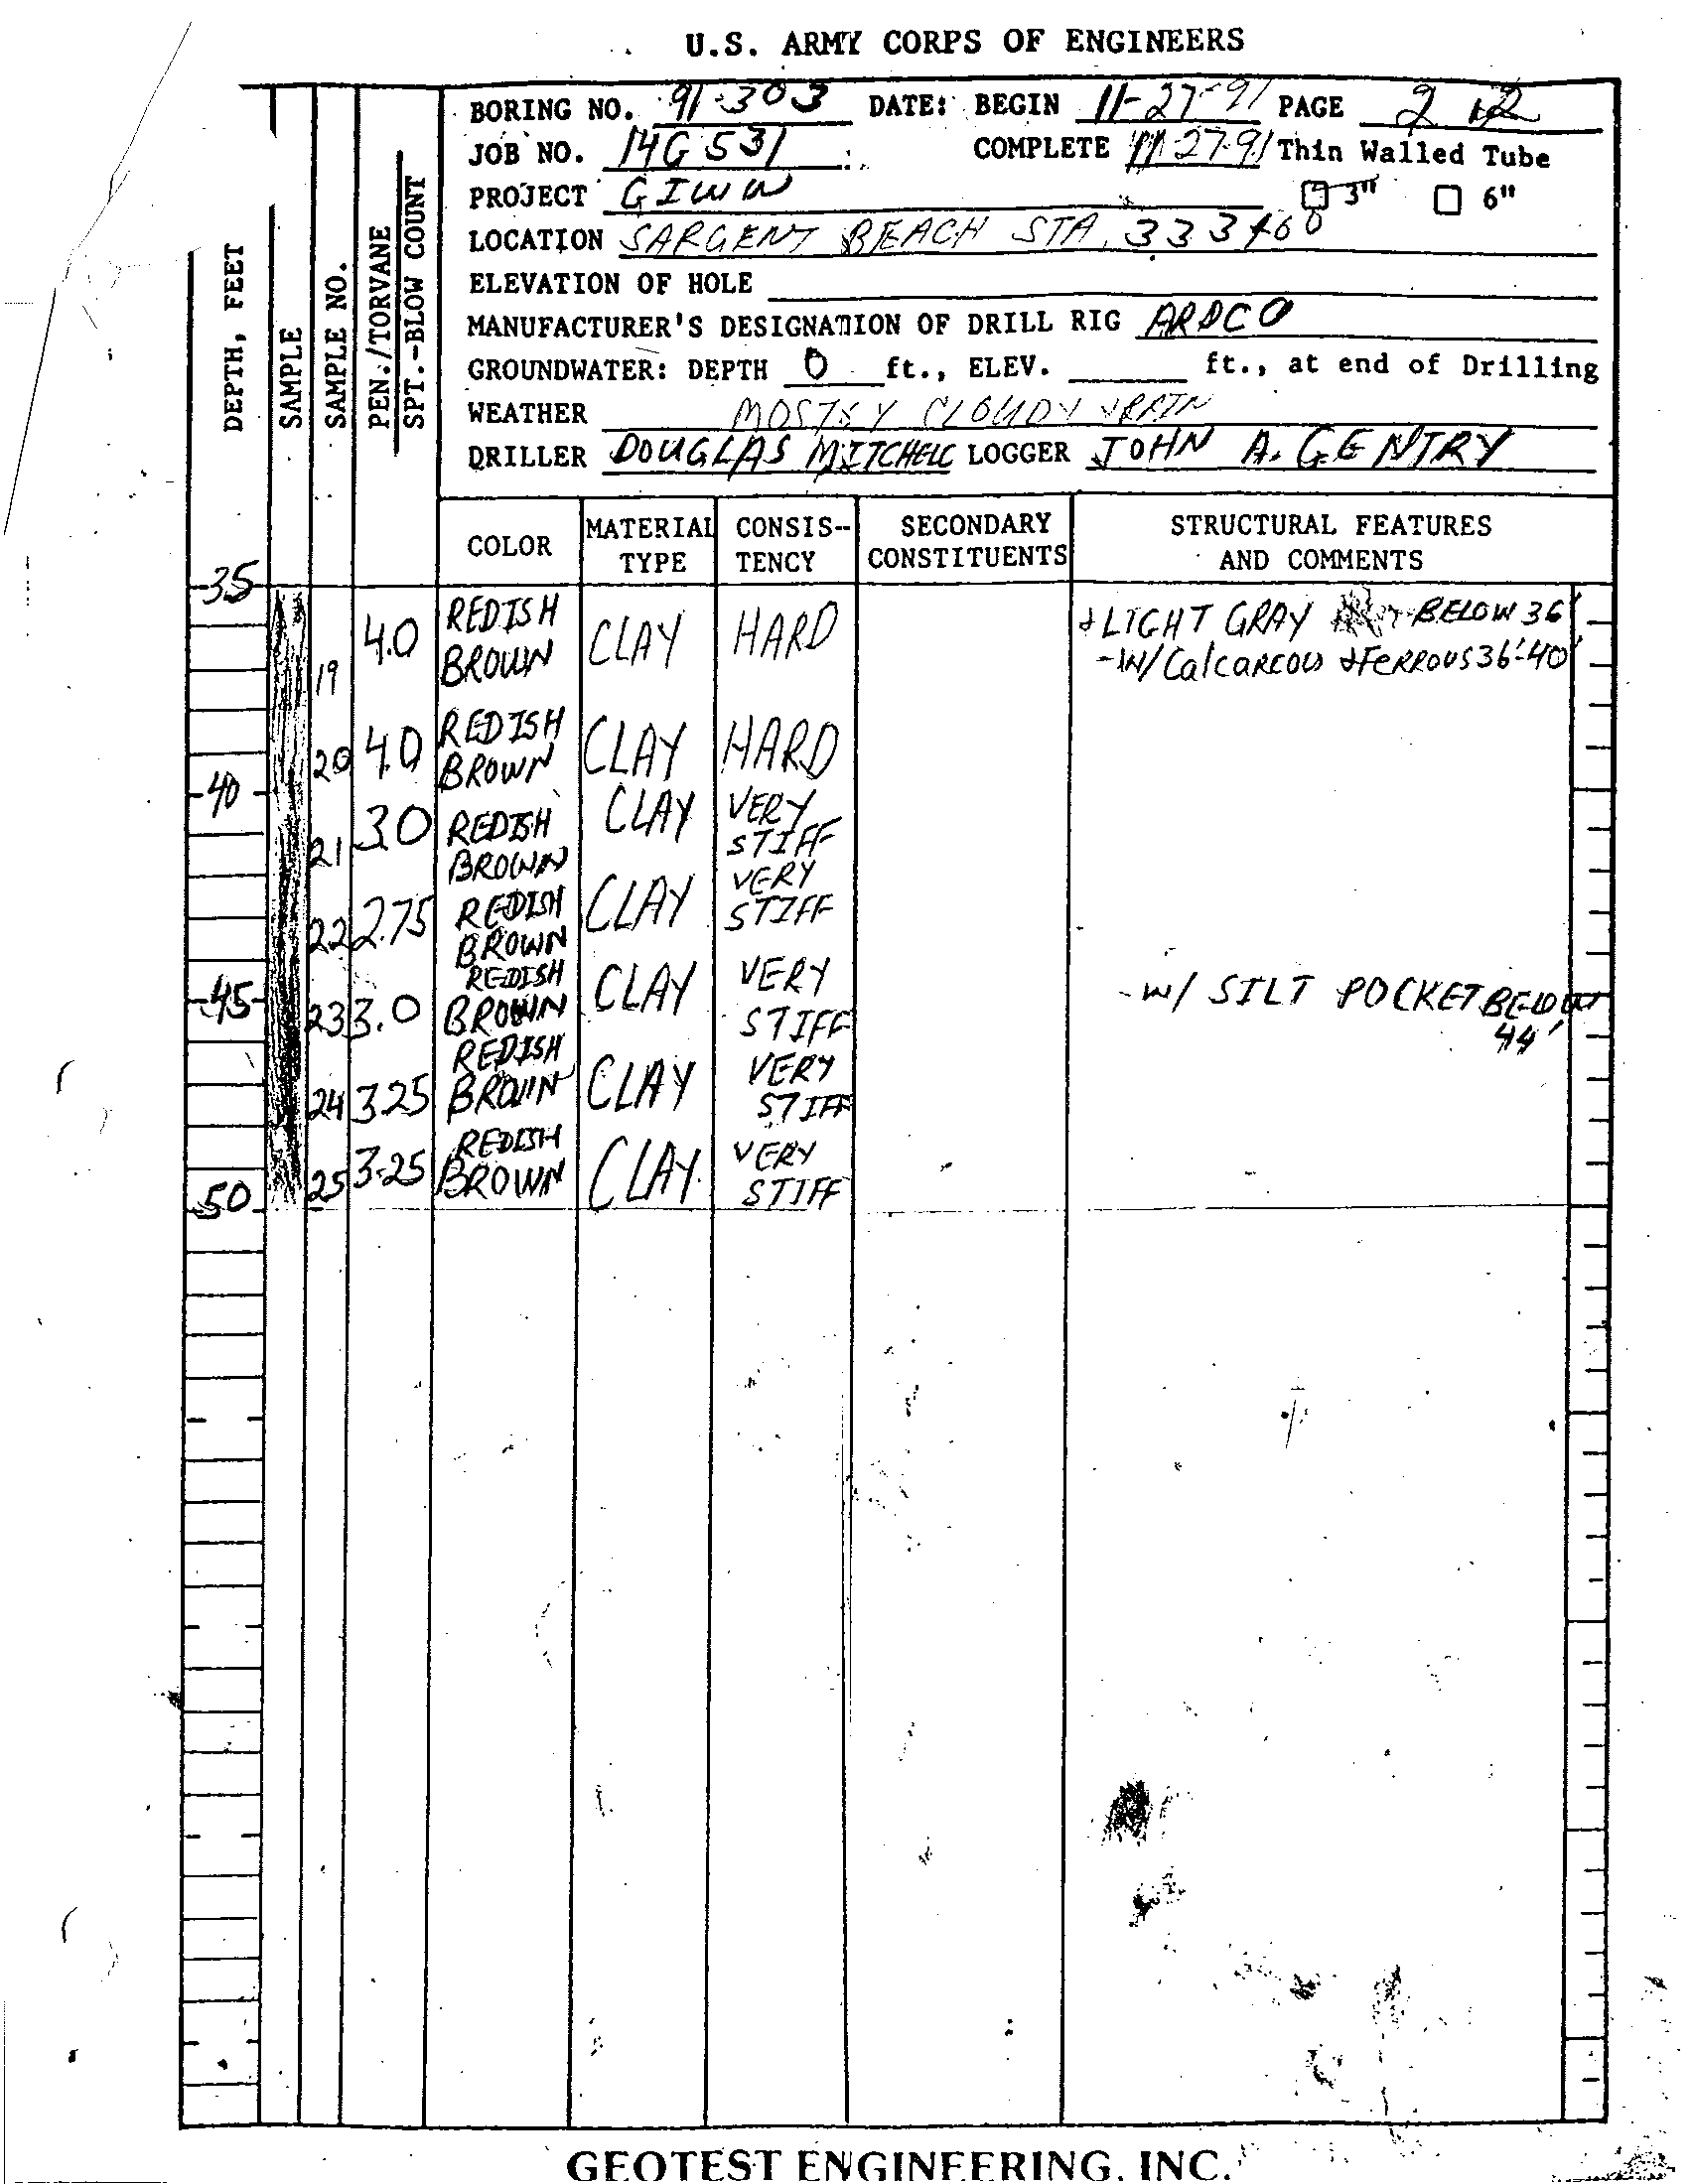 U.S. ARMY CORPS OF ENGINEERS
BORING NO. 91-303 DATE: BEGIN 11-27-91 PAGE 2
JOB NO. 14G531 COMPLETE 11-27-91 Thin Walled Tube
PROJECT GIWW 3" 6"
LOCATION SARGENT BEACH STA. 333+60
ELEVATION OF HOLE
MANUFACTURER'S DESIGNATION OF DRILL RIG ARDCO
GROUNDWATER: DEPTH 0 ft., ELEV. ft., at end of Drilling
WEATHER MOSTLY CLOUDY
DRILLER DOUGLAS MITCHELL LOGGER JOHN A. GENTRY
DEPTH, FEET
SAMPLE
SAMPLE NO.
PEN./TORVANE
SPT.-BLOW COUNT
COLOR
MATERIAL
TYPE
CONSIS-
TENCY
SECONDARY
CONSTITUENTS
STRUCTURAL FEATURES
AND COMMENTS
35
19 4.0 REDISH CLAY HARD +LIGHT GRAY BELOW 36'
BROWN -W/Calcareous +FERROUS 36'-40'
20 4.0 REDISH CLAY HARD
BROWN
40
21 3.0 REDISH CLAY VERY
BROWN STIFF
22 2.75 REDISH CLAY VERY
BROWN STIFF
45
23 3.0 REDISH CLAY VERY -W/ SILT POCKET BELOW
BROWN STIFF 44'
24 3.25 REDISH CLAY VERY
BROWN STIFF
25 3.25 REDISH CLAY VERY
BROWN STIFF
50
GEOTEST ENGINEERING, INC.